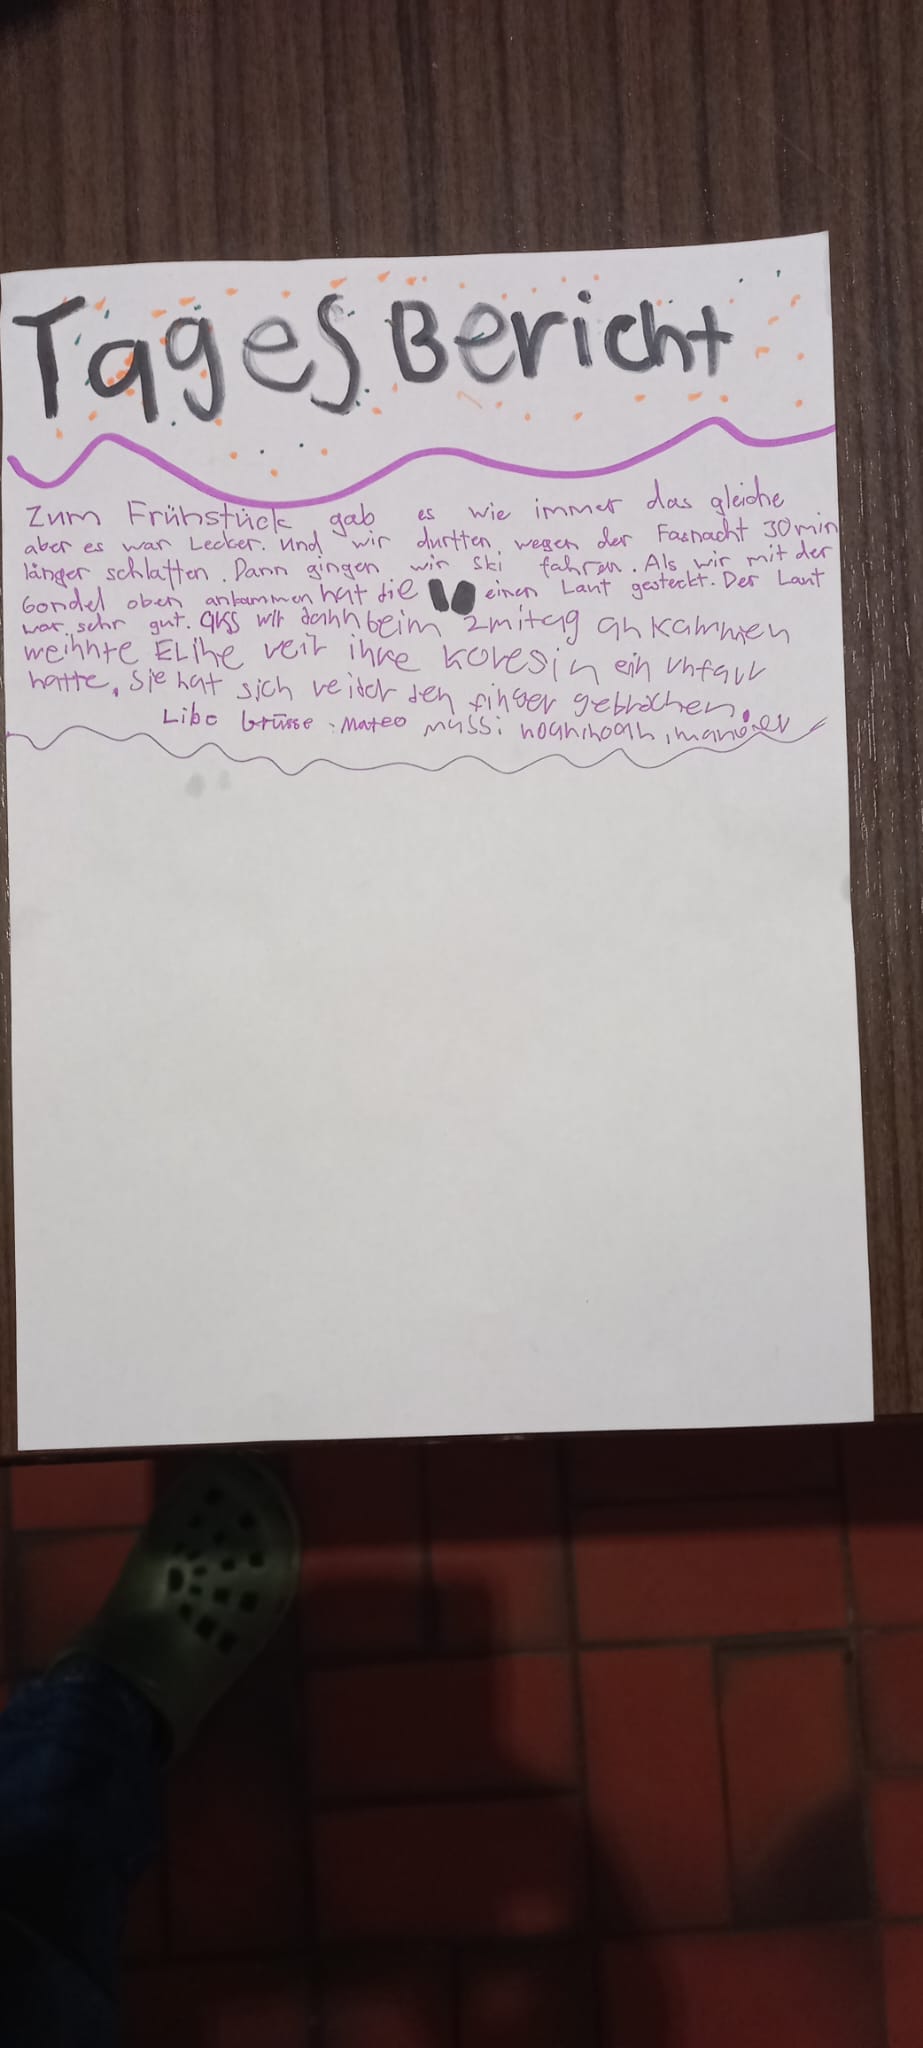 TagesBericht
Zum Frühstück gab es wie immer das gleiche
aber es war Lecker. Und wir durften wegen der Fasnacht 30min
länger schlaffen. Dann gingen wir Ski fahren. Als wir mit der
Gondel oben ankammen hat die einen Lauf gesteckt. Der Lauf
war sehr gut. Als wir dahn beim Zmitag ankammen
weihnte Elihe veil ihre kolesin ein unfall
hatte. Sie hat sich leider den finger gebrochen.
Libe Grüsse: Mateo mussi